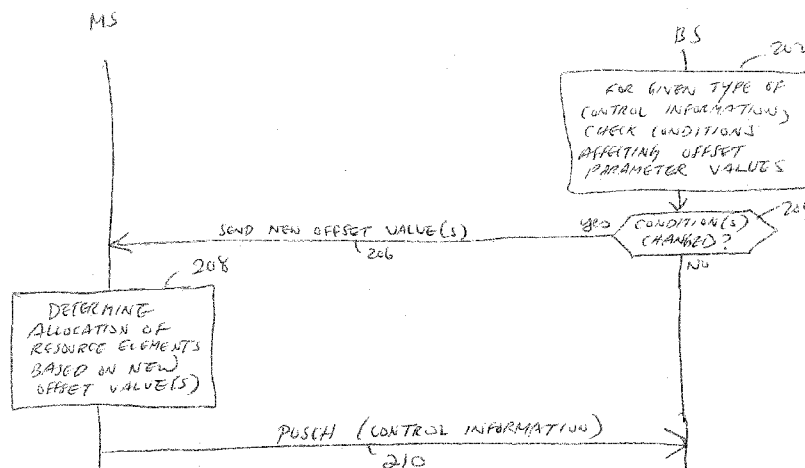 MS
BS
202
FOR GIVEN TYPE OF
CONTROL INFORMATION,
CHECK CONDITIONS
AFFECTING OFFSET
PARAMETER VALUES
SEND NEW OFFSET VALUE(S)
206
yes
CONDITION(S)
CHANGED?
NO
208
DETERMINE
ALLOCATION OF
RESOURCE ELEMENTS
BASED ON NEW
OFFSET VALUE(S)
PUSCH (CONTROL INFORMATION)
210